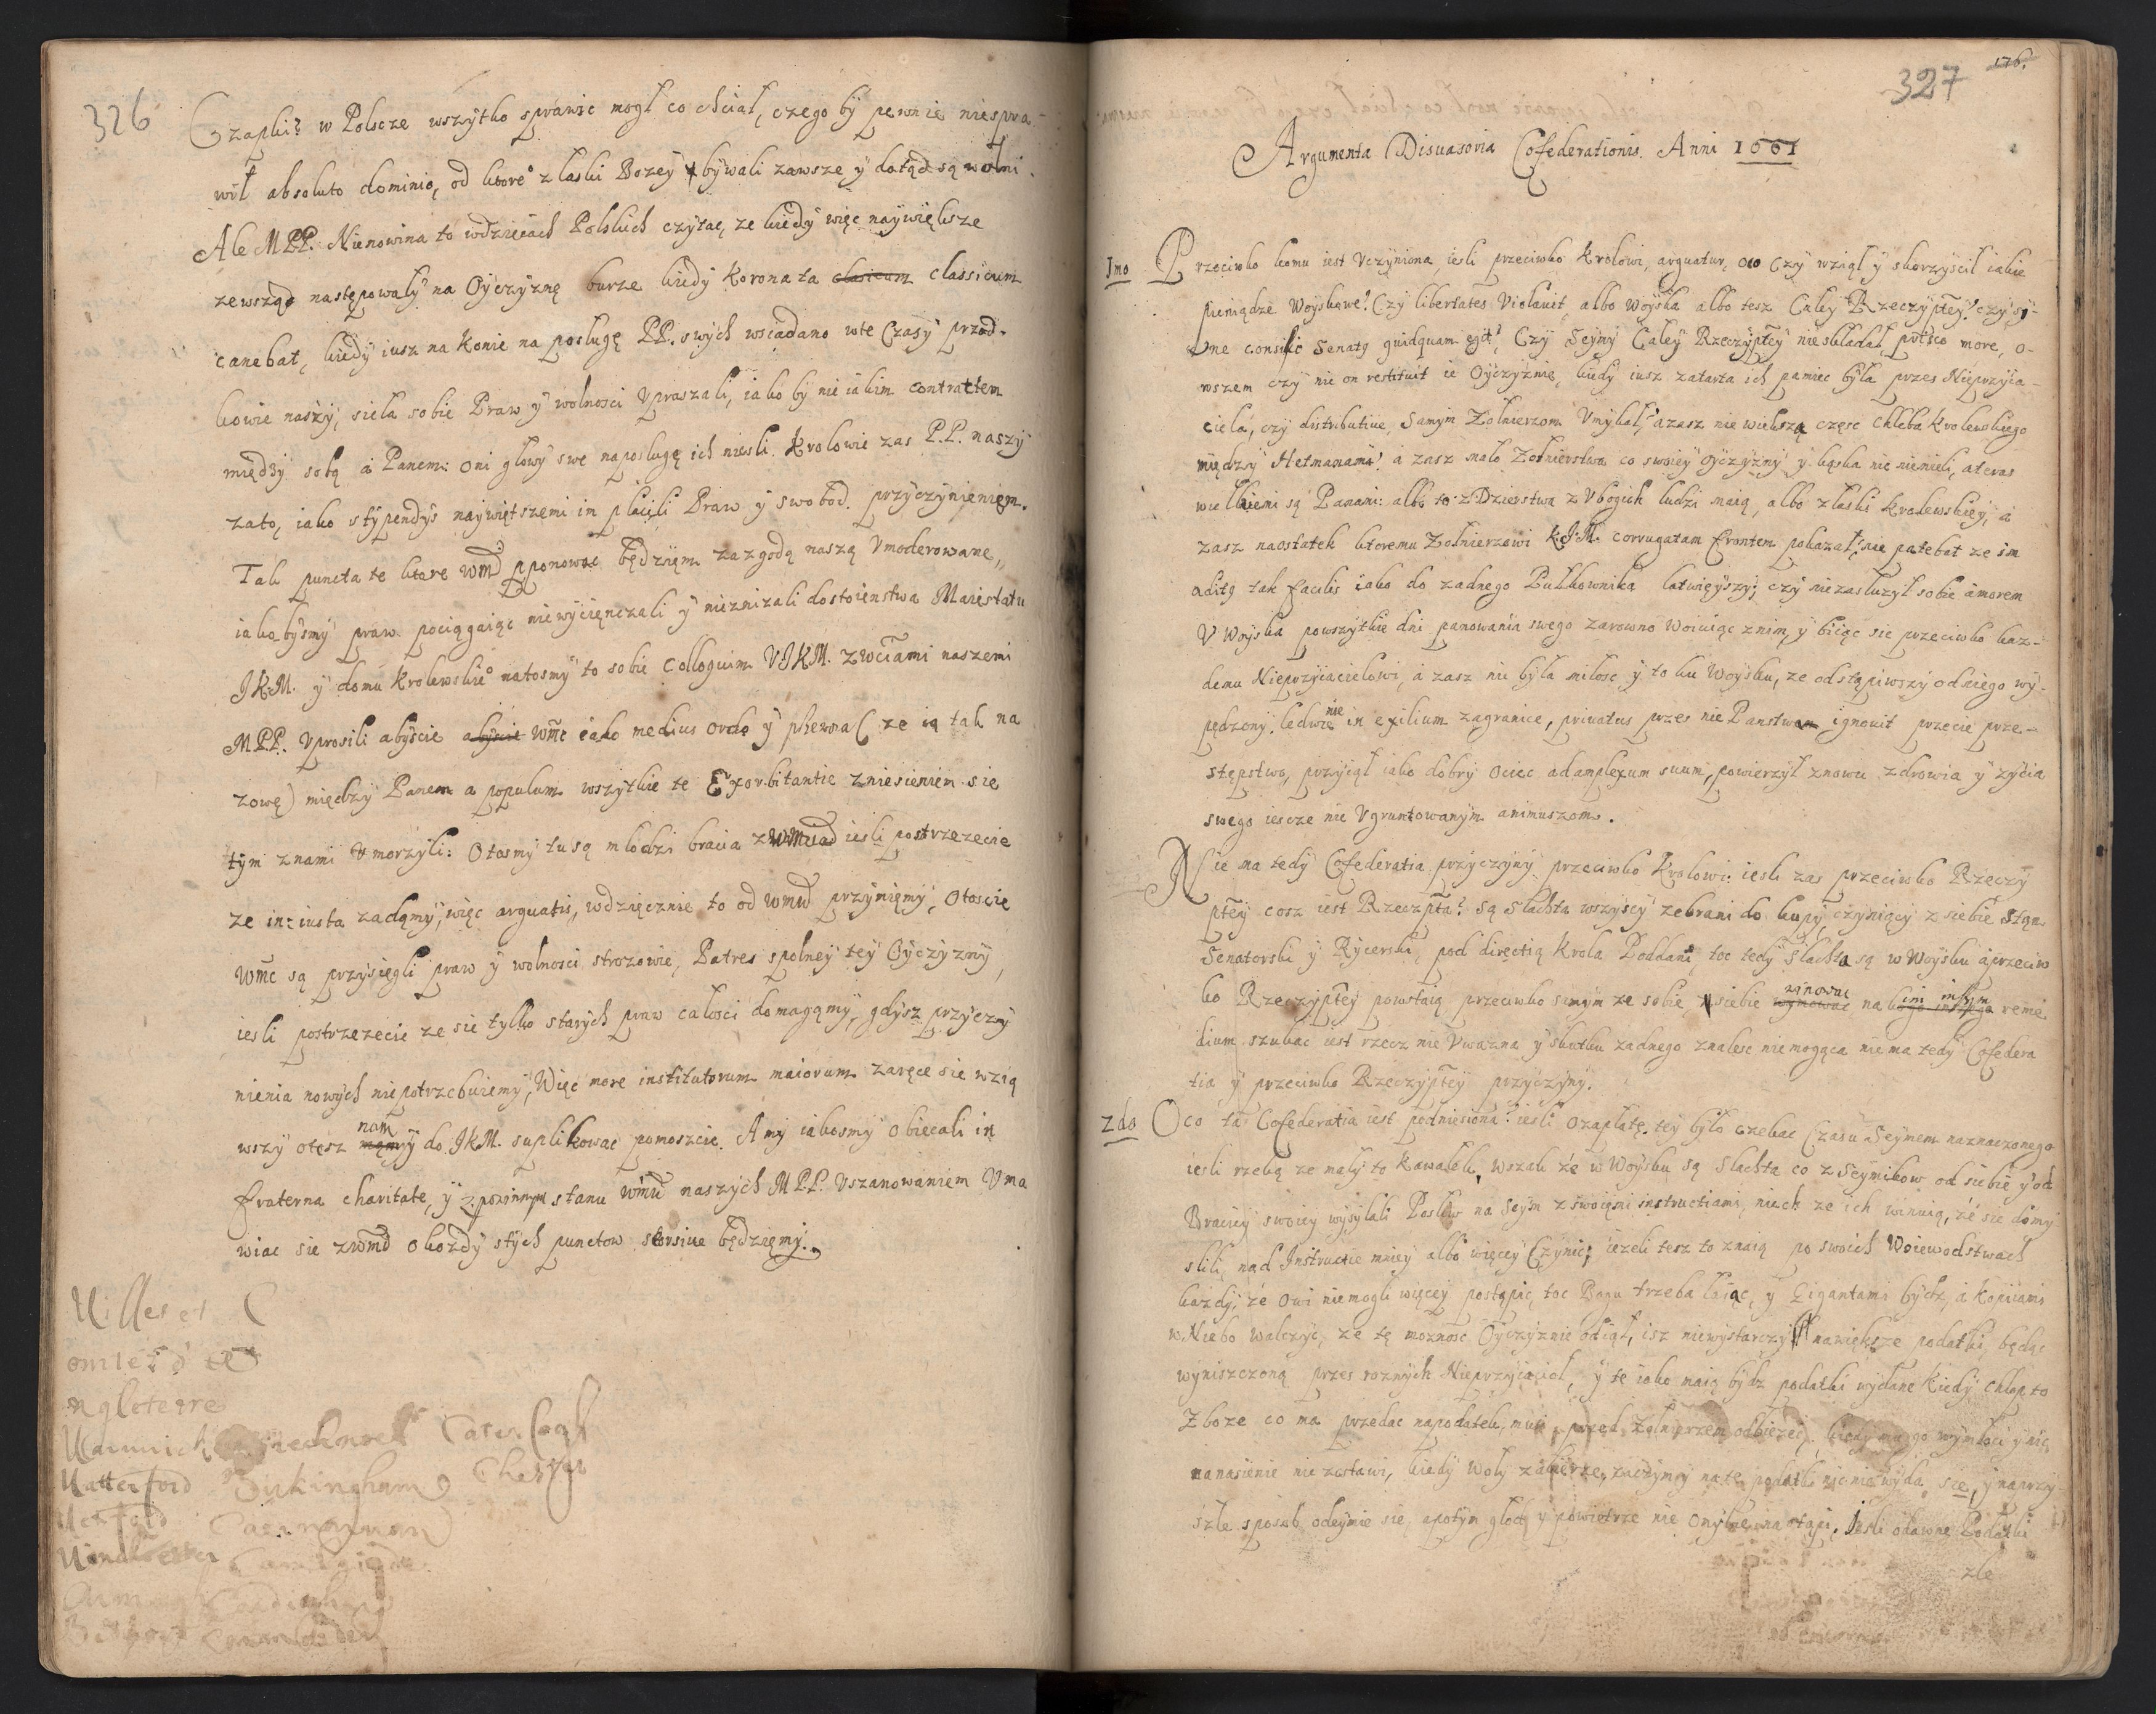 326
Czapki? w Polscze wszytko sprawic mogł co chciał, czego by pewnie niespra-
wił absoluto dominio, od ktore° z łaski Bozey bywali zawsze y dotąd są wolni.
Ale MPP. Nienowina to wdzieiach Polskich czytac, ze kiedy więc naywiększe
zewsząd następowały na Oyczyznę burze kiedy Korona ta clasicum classicum
canebat, kiedy iusz na Konie na posługę PP. swych wsiadano wte Czasy przod-
kowie naszy, siela sobie Praw y wolnosci Vpraszali, iako by nie iakim contractem
między sobą a Panem: oni głowy swe naposługę ich niesli. Krolowie zas P.P. naszy
zato, iako stypendys naywiętszemi im płacili Praw y swobod. przyczynieniem.
Tak puncta te ktore wmd pponowac będziem za zgodą naszą Vmoderowane,
iakobysmy praw pociągaiąc niewycięnczali y nieznizali dostoienstwa Maiestatu
JKM. y domu Krolewskie° natosmy to sobie Colloquium VJKM. zwciami naszemi
MPP. Vprosili abyscie abyscie wmc iako medius ordo y (ze ią tak na
zowę) między Panem a populum wszytkie te Exorbitantie zniesieniem sie
tym znami Vmorzyli: Otosmy tu są młodzi bracia iesli postrzezecie
ze iniusta ządąmy, więc arguatis, wdzięcznie to od wmd przyimięmy, Otoscie
wmc są przysięgli praw y wolnosci strozowie, Patres spolney tey Oyczyzny,
iesli postrzezecie ze sie tylko starych praw całosci domagąmy, gdysz przyczy
nienia nowych niepotrzebuiemy, Więc more institutorum maiorum zaręce sie wzią
wszy otesz nam do JKM. suplikowac pomoszcie. A my iakosmy obiecali in
fraterna charitate, y z powinnym stanu wmd naszych MPP. Vszanowaniem Vma
wiac sie zwmd okozdy stych punctow storsiue będziemy.
ngleterre
Watterford Bukingham Chester
327
176.
Argumenta Disuasoria Cofederationis. Anni 1661
Imo Przeciwko komu iest Vczyniona, iesli przeciwko Krolowi, arguatur, oco Czy wziął y skorzyscił iakie
pieniądze Woyskowe? Czy libertates Violauit, albo Woyska albo tesz Całey Rzeczyptey? czy si-
ne consilio Senatg quidquam egit? Czy Seymy Całey Rzeczyptey nieskładał, prisco more, o-
wszem czy nie on restituit ie Oyczyznie, kiedy iusz zatarta ich pamiec była przes Nieprzyia-
ciela, czy distributiue Samym Zołnierzom Vmykał? azasz nie wiekszą częsc Chleba Krolewskiego
między Hetmanami? a zasz mało Zołnierstwa co swoiey oyczyzny y kąska nie niemieli, ateras
wielkiemi są Panami: albo to z Dzierstwa z Vbogich ludzi maią, albo z łaski Krolewskiey, a
zasz naostatek ktoremu Zołnierzowi K.J.M. corrugatam frontem pokazał? nie patebat ze im
aditg tak facilis iako do zadnego Pułkownika łatwieyszy; czy niezasłuzył sobie amorem
V Woyska powszytkie dni panowania swego zarowno Woiuiąc znim, y biiąc sie przeciwko kaz-
demu Nieprzyiacielowi, a zasz nie była miłosc y to ku Woysku, ze odstąpiwszy odniego wy-
pędzony, ledwie nie in exilium zagranice, priuatus przes nie Panstwem ignouit przecie prze-
stępstwo, przyiął iako dobry Ociec ad amplexum suum, powierzył znowu zdrowia y zycia
swego iescze nie Vgruntowanym animuszom.
Nie ma tedy Cofederatia przyczyny przeciwko Krolowi: iesli zas przeciwko Rzeczy
ptey cosz iest Rzeczpta? Są Slachta wszyscy zebrani do kupy, czyniący z siebie Stan
Senatorski y Rycerski, pod directią Krola Poddani, toc tedy Slachta są w Woysku a przeciw
ko Rzeczyptey powstaią przeciwko samym ze sobie, siebie winowac na kim inszym reme
dium szukac iest rzecz nie Vwazna y skutku zadnego znalesc niemogąca nie ma tedy Cofedera
tia y przeciwko Rzeczyptey przyczyny.
2do Oco ta Cofederatia iest podniesiona? iesli Ozapłatę tey było czekac Czasu Seymem naznaczonego
iesli rzeką ze mały to Kawałek, Wszak ze w Woysku są Slachta co z Seymikow od siebie y od
Braciey swoiey wysyłali Posłow na Seym z swoięmi instructiami, niech ze ich winuią, ze sie domy
slili nad Instructie mniey albo więcey Czynic, iezeli tesz to znaią po swoich Woiewodstwach
kazdy, ze Oni niemogli więcey postąpic, toc Bogu trzeba łaiąc, y Gigantami bydz, a Kopiiami
w Niebo walczyc, ze tę moznosc Oyczyznie odiął, isz niewystarczy na większe podatki, będąc
wyniszczoną przes roznych Nieprzyiacioł, y te iako maią bydz podatki wydane kiedy chłop to
Zboze co ma przedac napodatek, musi przed Zołnierzem odbiezec, kiedy mu go wymłoci y nic
nanasienie nie zostawi, kiedy Woły zabierze, zaczym y na te podatki nic nie wyda sie, y naprzy
szłe sposob odeymie sie, apotym głod y powietrze nie Omylne nastąpi. Jesli odawne Podatki
zle